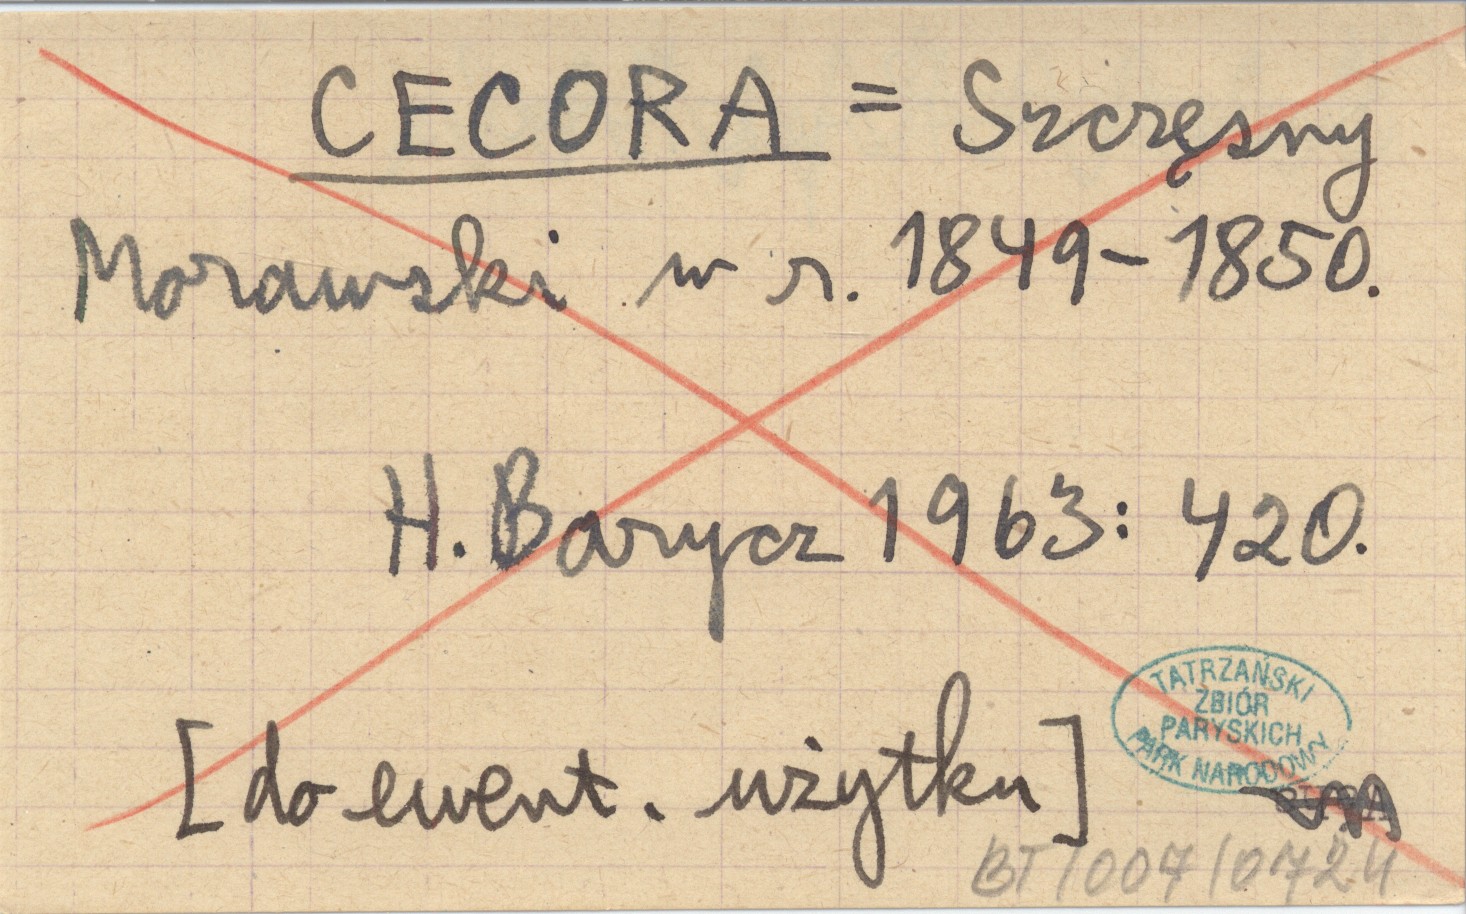 CECORA = Szczęsny
Morawski w r. 1849-1850.
H. Barycz 1963: 420.
[do ewent. użytku]
TATRZAŃSKI
ZBIÓR
PARYSKICH
PARK NARODOWY
BT/007/0724